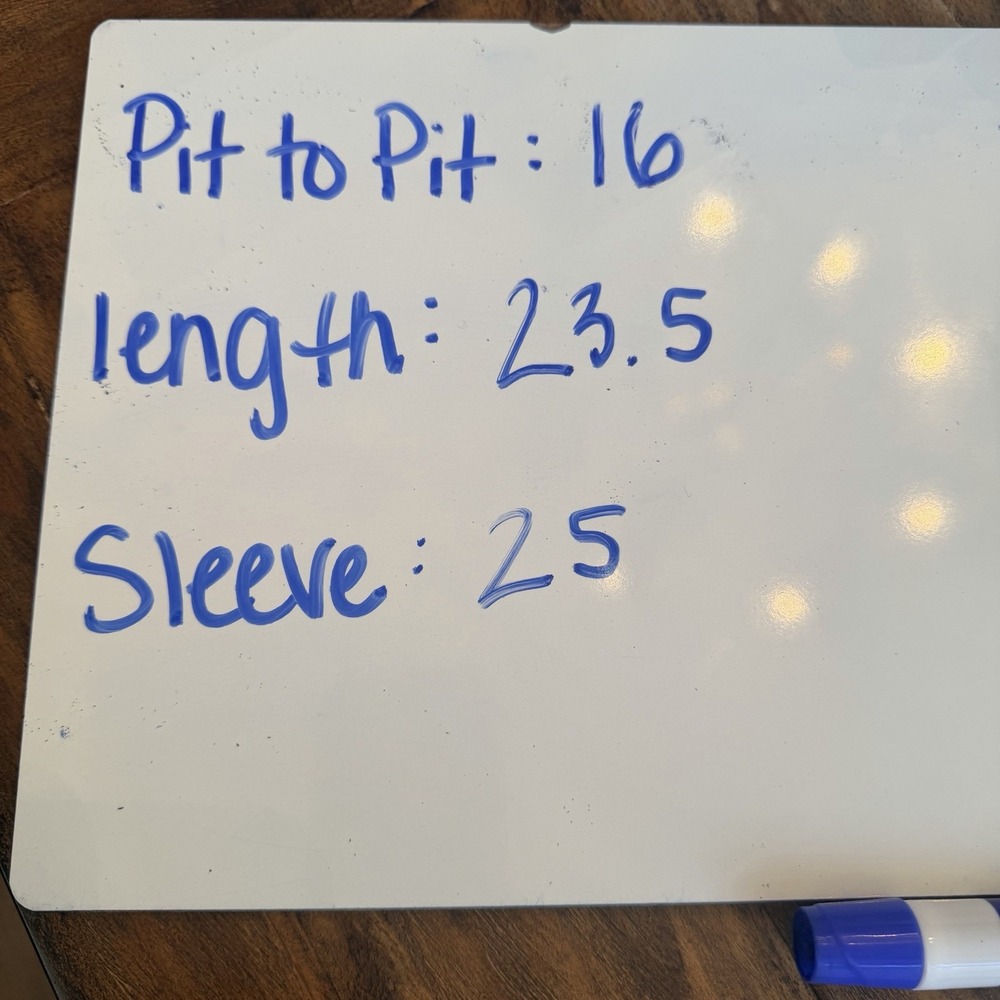 Pit to Pit: 16
length: 23.5
Sleeve: 25